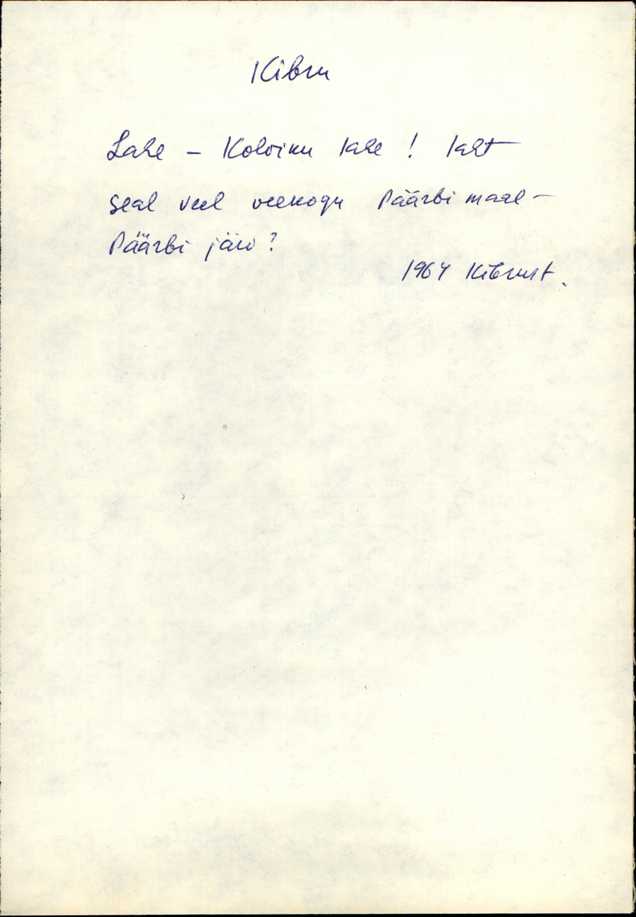 Kibru
Lahe – Koloinu lahe! Kast
seal veel veekogu Päärbi maal –
Päärbi järv?
1964 Kibrust.